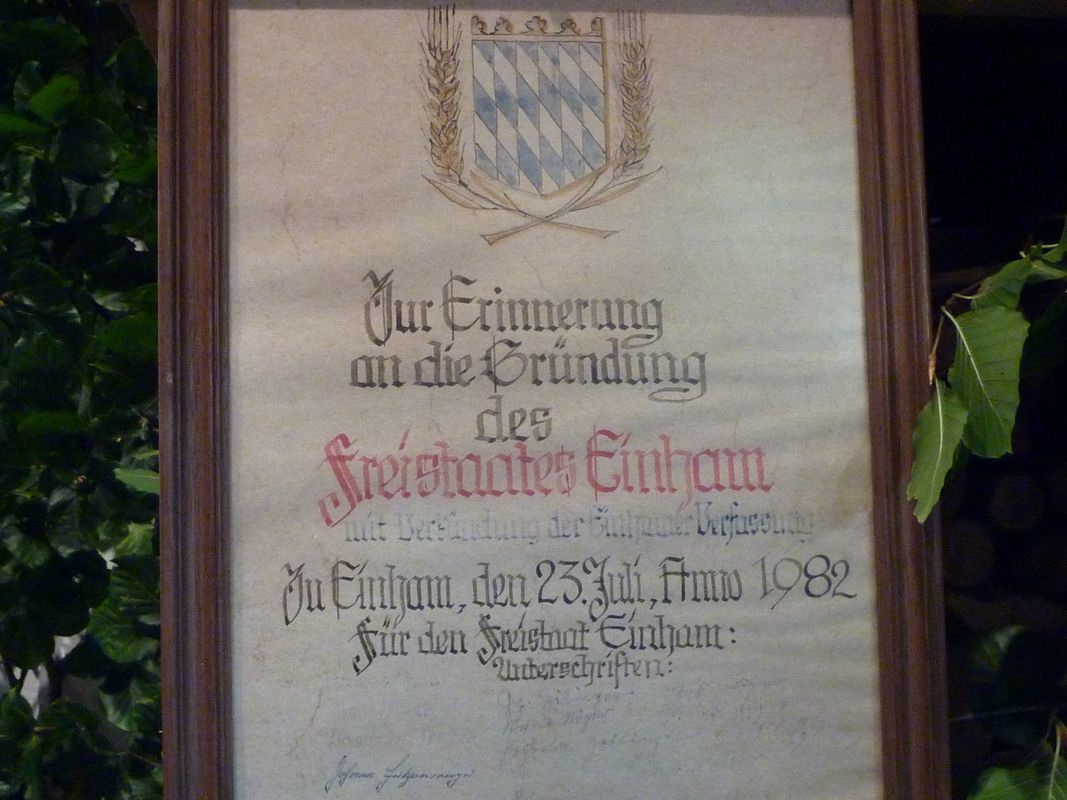 Zur Erinnerung
an die Gründung
des
Freistaates Einham
mit Verkündung der Einhamer Verfassung
Zu Einham, den 23. Juli, Anno 1982
Für den Freistaat Einham:
Unterschriften:
Johann